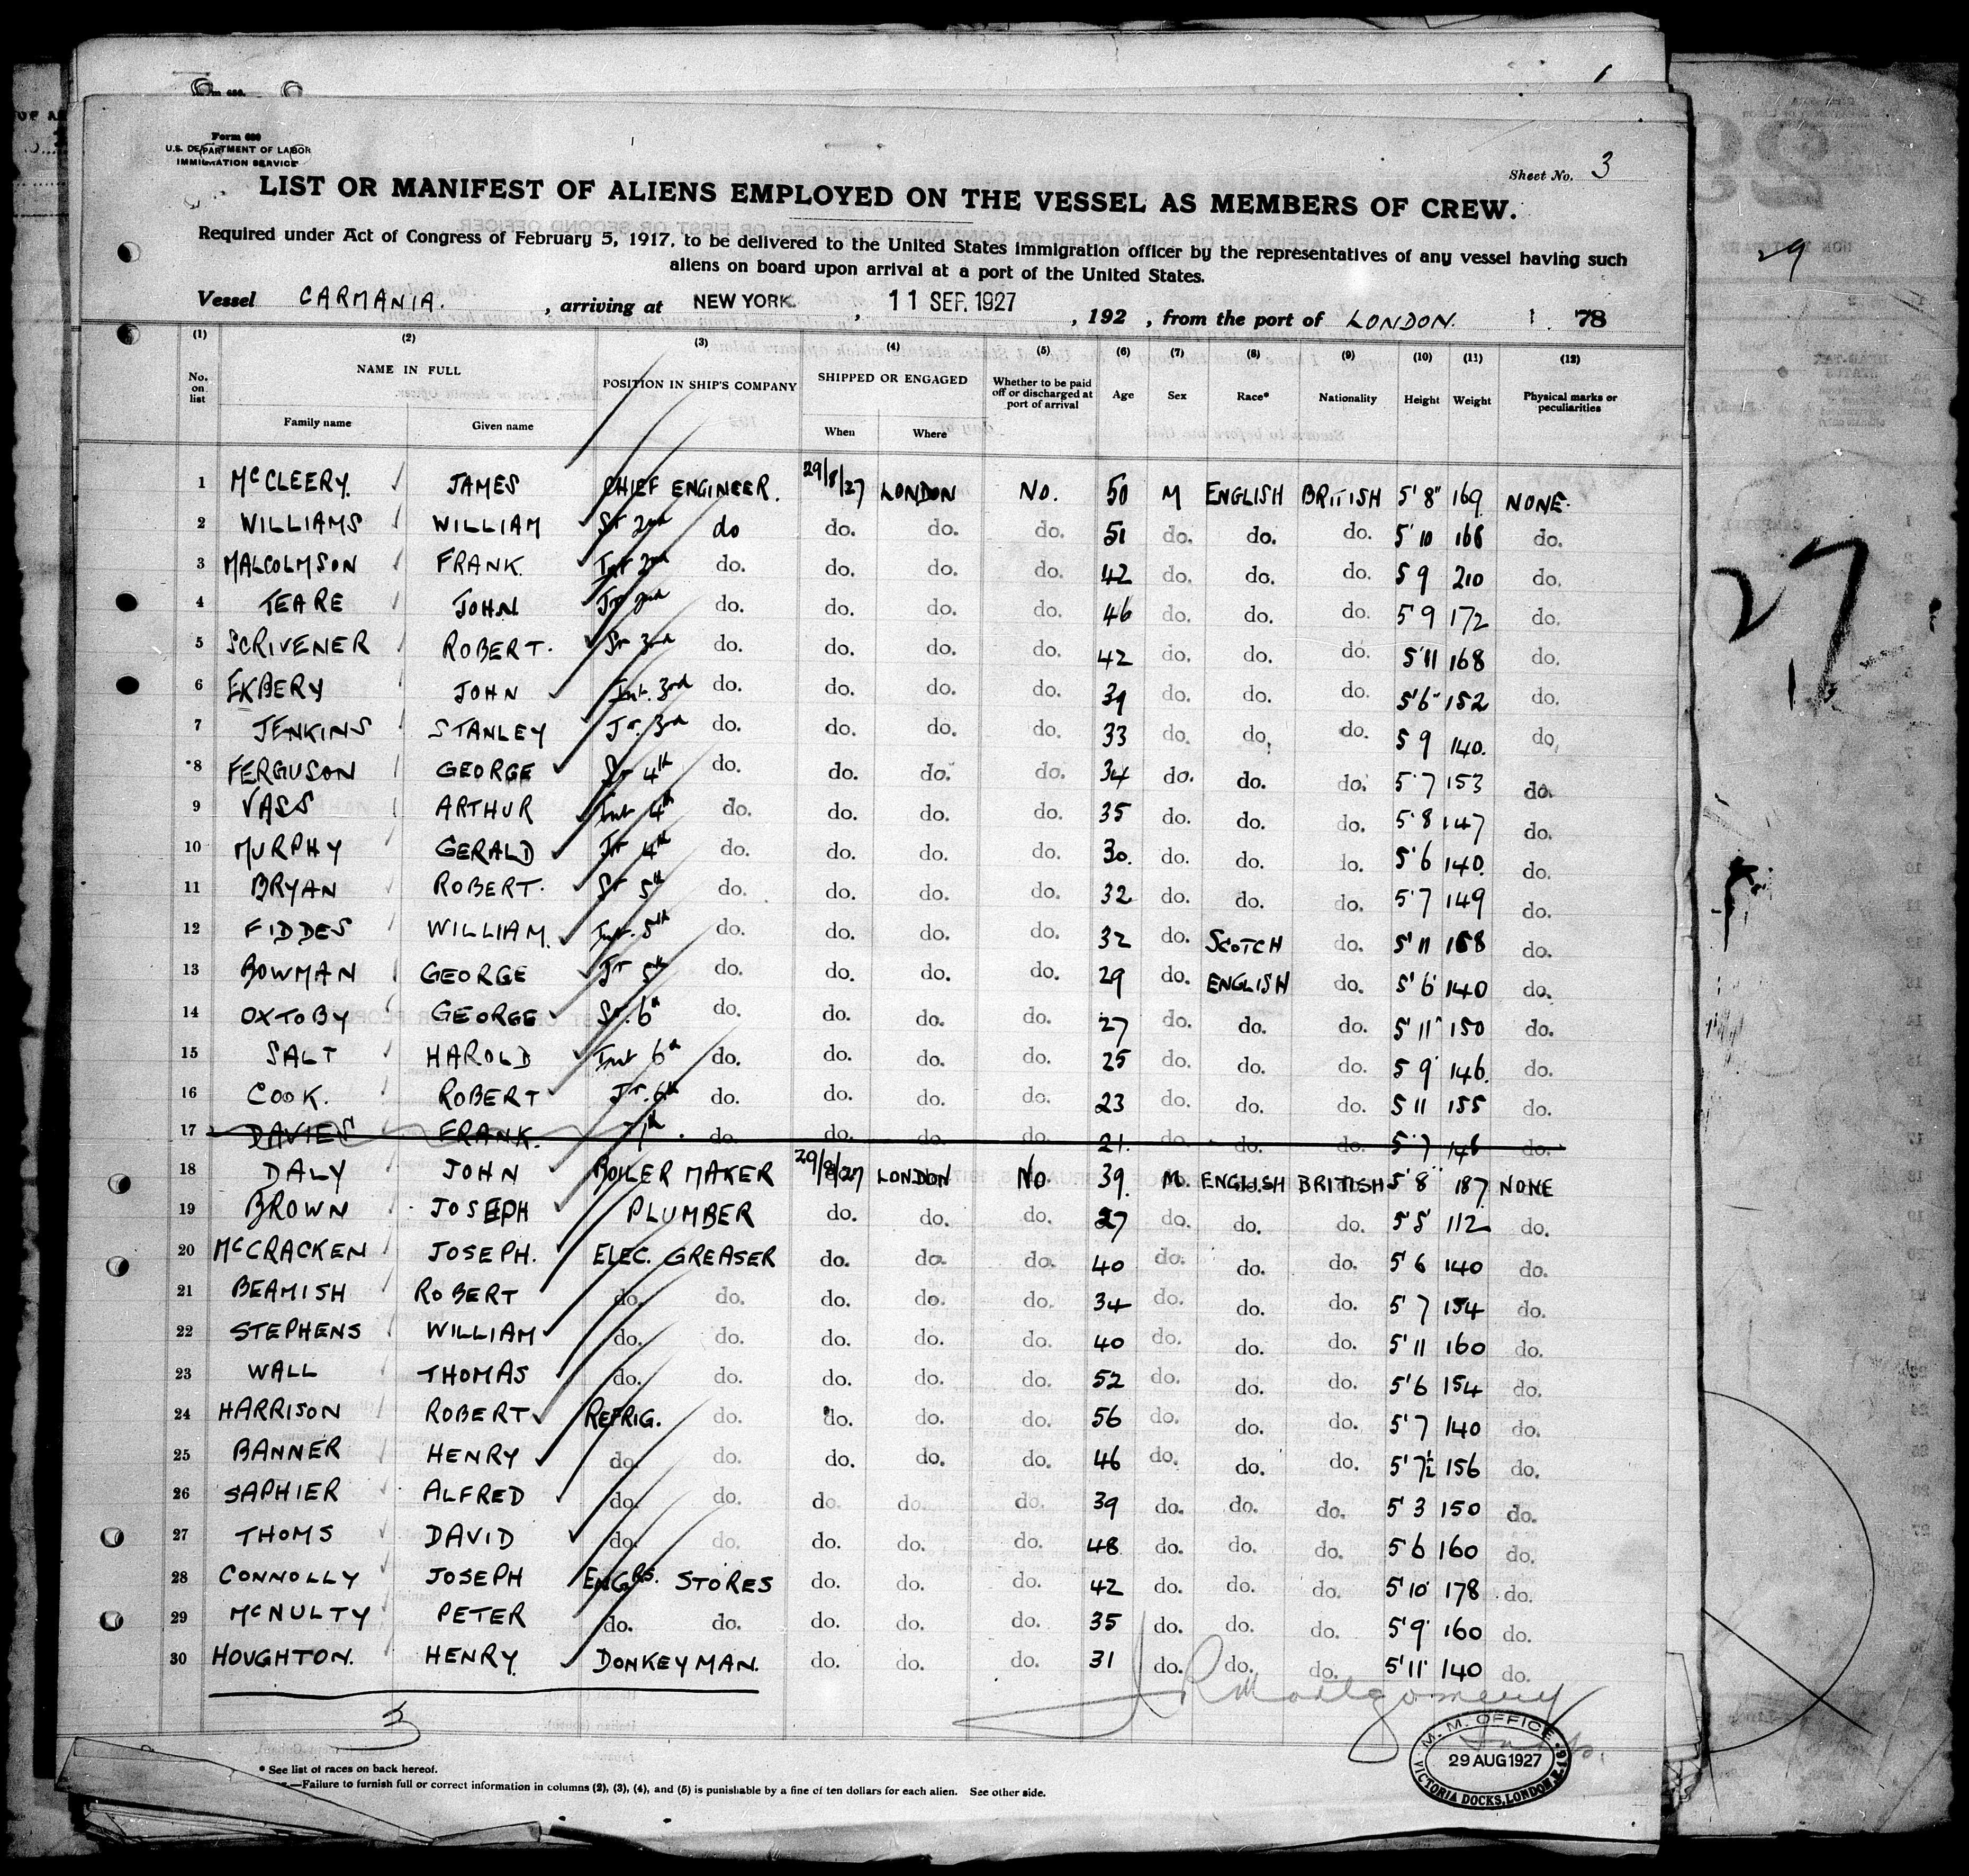 Form 680
U.S. DEPARTMENT OF LABOR
IMMIGRATION SERVICE
Sheet No. 3
LIST OR MANIFEST OF ALIENS EMPLOYED ON THE VESSEL AS MEMBERS OF CREW.
Required under Act of Congress of February 5, 1917, to be delivered to the United States immigration officer by the representatives of any vessel having such
aliens on board upon arrival at a port of the United States.
Vessel CARMANIA. , arriving at NEW YORK. , 11 SEP. 1927 , 192 , from the port of LONDON. 78
(1) (2) (3) (4) (5) (6) (7) (8) (9) (10) (11) (12)
No. on list NAME IN FULL POSITION IN SHIP'S COMPANY SHIPPED OR ENGAGED Whether to be paid off or discharged at port of arrival Age Sex Race* Nationality Height Weight Physical marks or peculiarities
Family name Given name When Where
1 McCLEERY. JAMES CHIEF ENGINEER. 29/8/27 LONDON No. 50 M ENGLISH BRITISH 5' 8" 169 NONE.
2 WILLIAMS WILLIAM Sr 2nd do do. do. do. 51 do. do. do. 5'10 168 do.
3 MALCOLMSON FRANK. Int 2nd do. do. do. do. 42 do. do. do. 5 9 210 do.
4 TEARE JOHN Jr 2nd do. do. do. do. 46 do. do. do. 5'9 172 do.
5 SCRIVENER ROBERT. Sr 3rd do. do. do. do. 42 do. do. do. 5'11 168 do.
6 EKBERY JOHN Int. 3rd do. do. do. do. 39 do. do. do. 5'6" 152 do.
7 JENKINS STANLEY Jr. 3rd do. do. do. do. 33 do. do. do. 5 9 140. do.
8 FERGUSON GEORGE Sr 4th do. do. do. do. 34 do. do. do. 5'7 153 do.
9 VASS ARTHUR Int 4th do. do. do. do. 35 do. do. do. 5'8 147 do.
10 MURPHY GERALD Jr 4th do. do. do. do. 30. do. do. do. 5'6 140. do.
11 BRYAN ROBERT. Sr 5th do. do. do. do. 32 do. do. do. 5'7 149 do.
12 FIDDES WILLIAM. Int. 5th do. do. do. do. 32 do. SCOTCH do. 5'11 158 do.
13 BOWMAN GEORGE Jr 5th do. do. do. do. 29 do. ENGLISH do. 5'6 140 do.
14 OXTOBY GEORGE Sr. 6th do. do. do. do. 27 do. do. do. 5'11" 150 do.
15 SALT HAROLD Int 6th do. do. do. do. 25 do. do. do. 5 9 146. do.
16 COOK. ROBERT Jr. 6th do. do. do. do. 23 do. do. do. 5 11 155 do.
17 DAVIES FRANK. 7th do. do. do. do. 21. do. do. do. 5'7 146 do.
18 DALY JOHN BOILER MAKER 29/8/27 LONDON No 39. M. ENGLISH BRITISH 5'8" 187 NONE
19 BROWN JOSEPH PLUMBER do. do. do. 27 do. do. do. 5'5 112 do.
20 McCRACKEN JOSEPH. ELEC. GREASER do. do. do. 40 do. do. do. 5'6 140 do.
21 BEAMISH ROBERT do. do. do. do. do. 34 do. do. do. 5'7 154 do.
22 STEPHENS WILLIAM do. do. do. do. do. 40 do. do. do. 5'11 160 do.
23 WALL THOMAS do. do. do. do. do. 52 do. do. do. 5'6 154 do.
24 HARRISON ROBERT REFRIG. do. do. do. do. 56 do. do. do. 5'7 140 do.
25 BANNER HENRY do. do. do. do. do. 46 do. do. do. 5'7½ 156 do.
26 SAPHIER ALFRED do. do. do. do. do. 39 do. do. do. 5'3 150 do.
27 THOMS DAVID do. do. do. do. do. 48 do. do. do. 5'6 160 do.
28 CONNOLLY JOSEPH ENGRS. STORES do. do. do. 42 do. do. do. 5'10 178 do.
29 McNULTY PETER do. do. do. do. do. 35 do. do. do. 5'9 160 do.
30 HOUGHTON. HENRY DONKEYMAN. do. do. do. 31 do. do. do. 5'11 140 do.
3
J R Montgomery
M. M. OFFICE
29 AUG 1927
VICTORIA DOCKS, LONDON, E.16.
* See list of races on back hereof.
—Failure to furnish full or correct information in columns (2), (3), (4), and (5) is punishable by a fine of ten dollars for each alien. See other side.
29
27